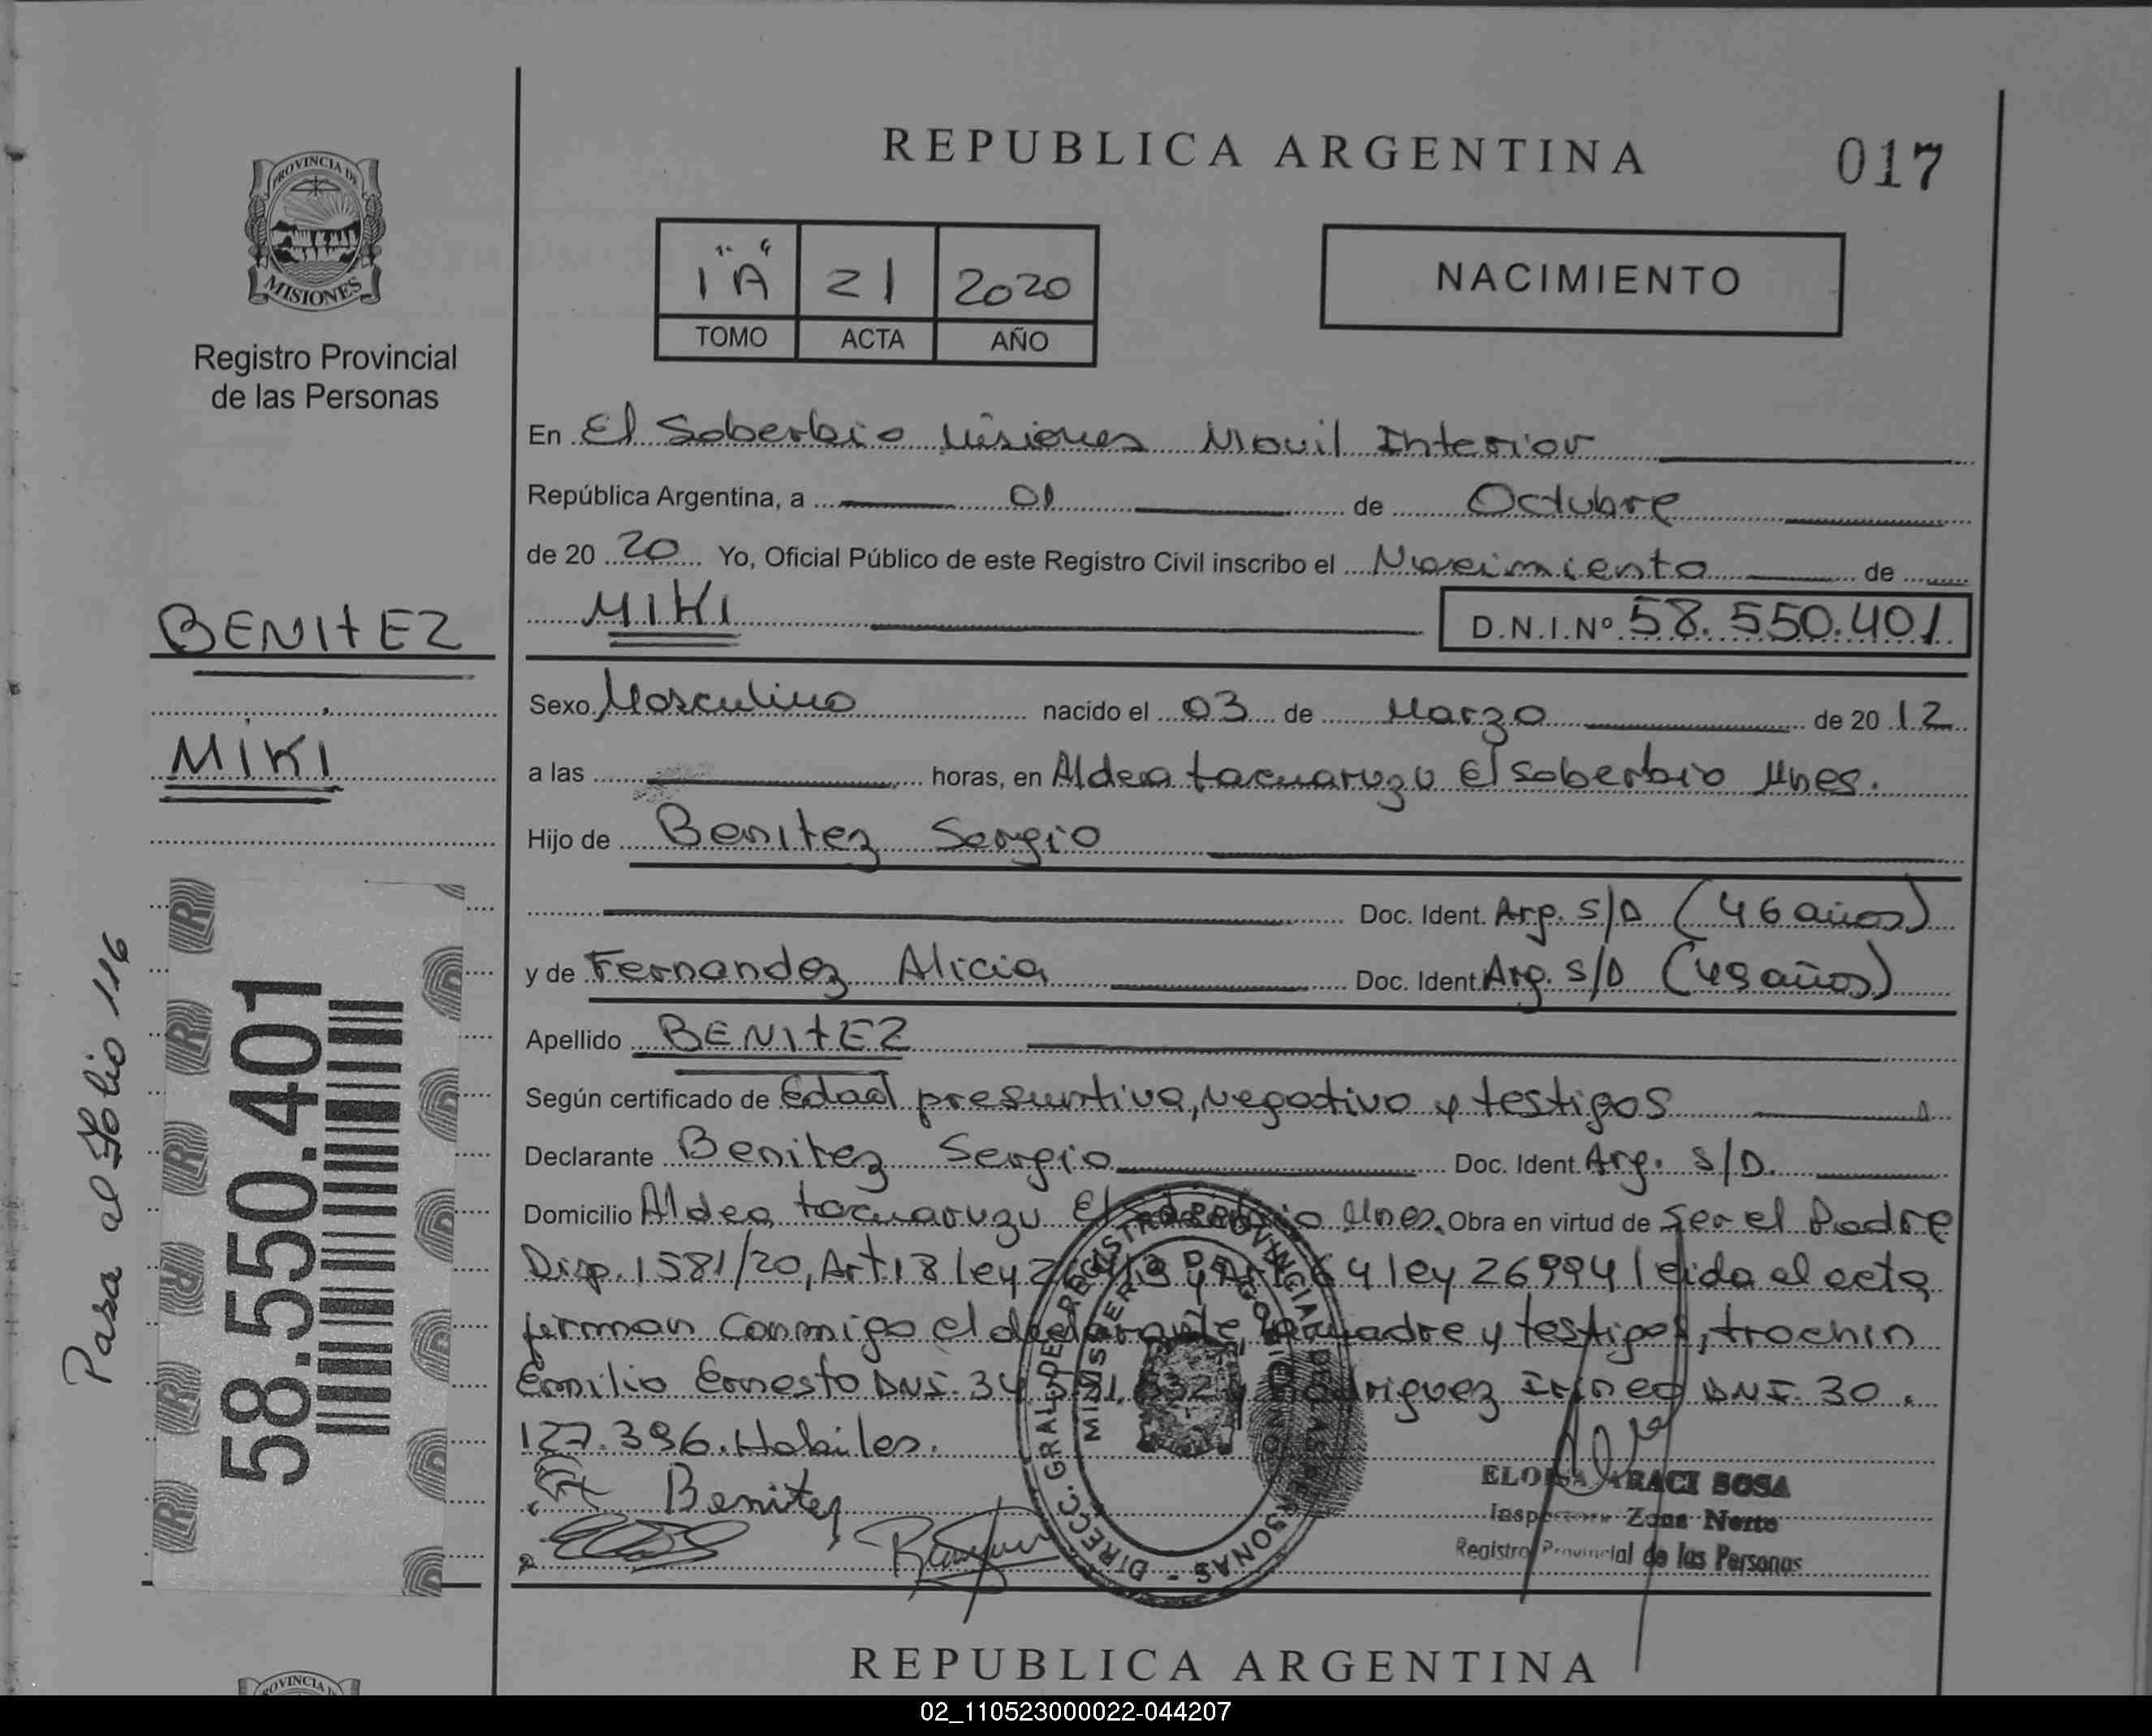 REPUBLICA ARGENTINA
017
PROVINCIA DE
MISIONES
Registro Provincial
de las Personas
1 "A" 21 2020
TOMO ACTA AÑO
NACIMIENTO
En El Soberbio Misiones Movil Interior
República Argentina, a 01 de Octubre
de 20 20 Yo, Oficial Público de este Registro Civil inscribo el Nacimiento de
MIKI D.N.I.Nº 58.550.401
BENITEZ
MIKI
Sexo Masculino nacido el 03 de Marzo de 20 12
a las horas, en Aldea tacuaruzu El soberbio Mnes.
Hijo de Benitez Sergio
Doc. Ident. Arg. S/D (46 años)
y de Fernandez Alicia Doc. Ident. Arg. S/D (49 años)
Apellido BENITEZ
Según certificado de Edad presuntiva, negativo y testigos
Declarante Benitez Sergio Doc. Ident. Arg. S/D.
Domicilio Aldea tacuaruzu El Soberbio Mnes. Obra en virtud de Ser el Padre
Disp. 1581/20, Art 18 ley y 64 ley 26994 leida el acta
firman conmigo el declarante, la Madre y testigos, trochin
Emilio Ernesto DNI. 34 Rodriguez Irineo DNI. 30.
127.396. Habiles.
Benitez
58.550.401
Pasa al Folio 116
DIRECC. GRAL. DE REGISTRO PROVINCIAL DE LAS PERSONAS
ELOISA ARACI SOSA
Inspectora Zona Norte
Registro Provincial de las Personas
REPUBLICA ARGENTINA
02_110523000022-044207